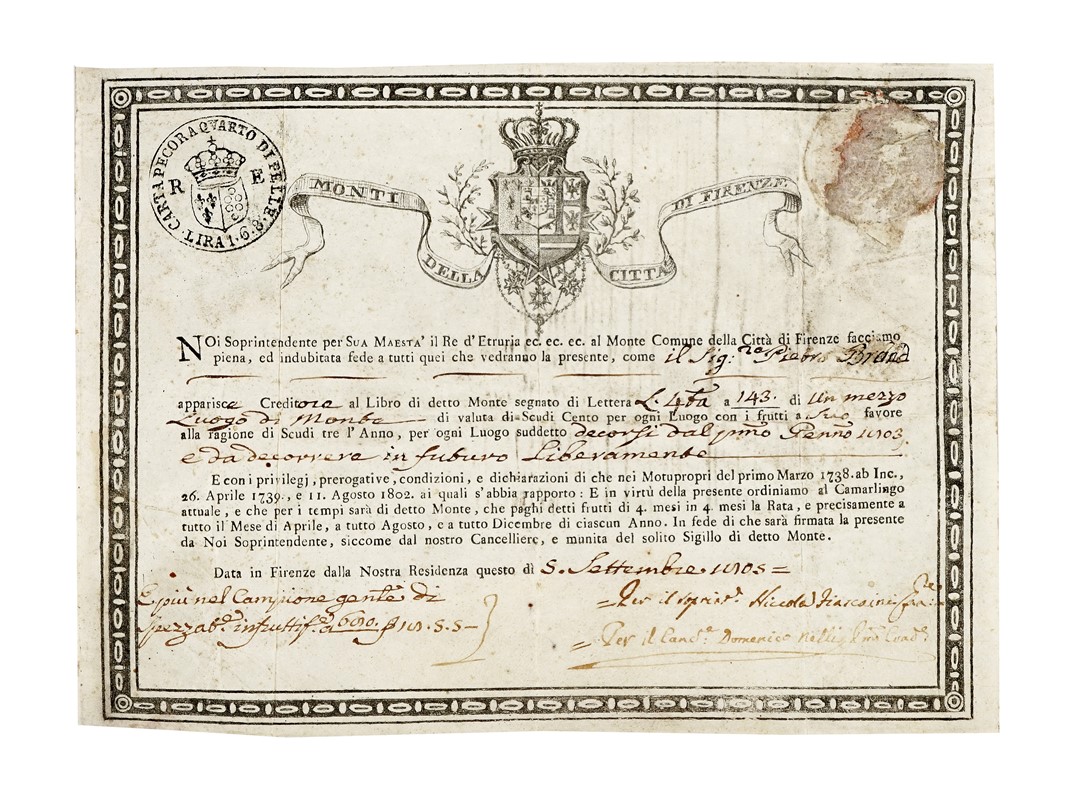 CARTAPECORA QVARTO DI PELLE
R E
LIRA 1.6.8.
MONTI DELLA CITTA DI FIRENZE
NOi Soprintendente per SUA MAESTA' il Re d'Etruria ec. ec. ec. al Monte Comune della Città di Firenze facciamo
piena, ed indubitata fede a tutti quei che vedranno la presente, come il Sig:re Pietro
apparisce Creditore al Libro di detto Monte segnato di Lettera L. 4ta a 143. di Un mezzo
Luogo di Monte di valuta di Scudi Cento per ogni Luogo con i frutti a Suo favore
alla ragione di Scudi tre l'Anno, per ogni Luogo suddetto decorsi dal pmo Genno 1803
e da decorrere in futuro Liberamente
E con i privilegj, prerogative, condizioni, e dichiarazioni di che nei Motupropri del primo Marzo 1738. ab Inc.,
26. Aprile 1739., e 11. Agosto 1802. ai quali s'abbia rapporto: E in virtù della presente ordiniamo al Camarlingo
attuale, e che per i tempi sarà di detto Monte, che paghi detti frutti di 4. mesi in 4. mesi la Rata, e precisamente a
tutto il Mese di Aprile, a tutto Agosto, e a tutto Dicembre di ciascun Anno. In fede di che sarà firmata la presente
da Noi Soprintendente, siccome dal nostro Cancelliere, e munita del solito Sigillo di detto Monte.
Data in Firenze dalla Nostra Residenza questo dì 5. Settembre 1805 =
E più nel Campione gentle di
=Per il Niccola
=Per il Domenico